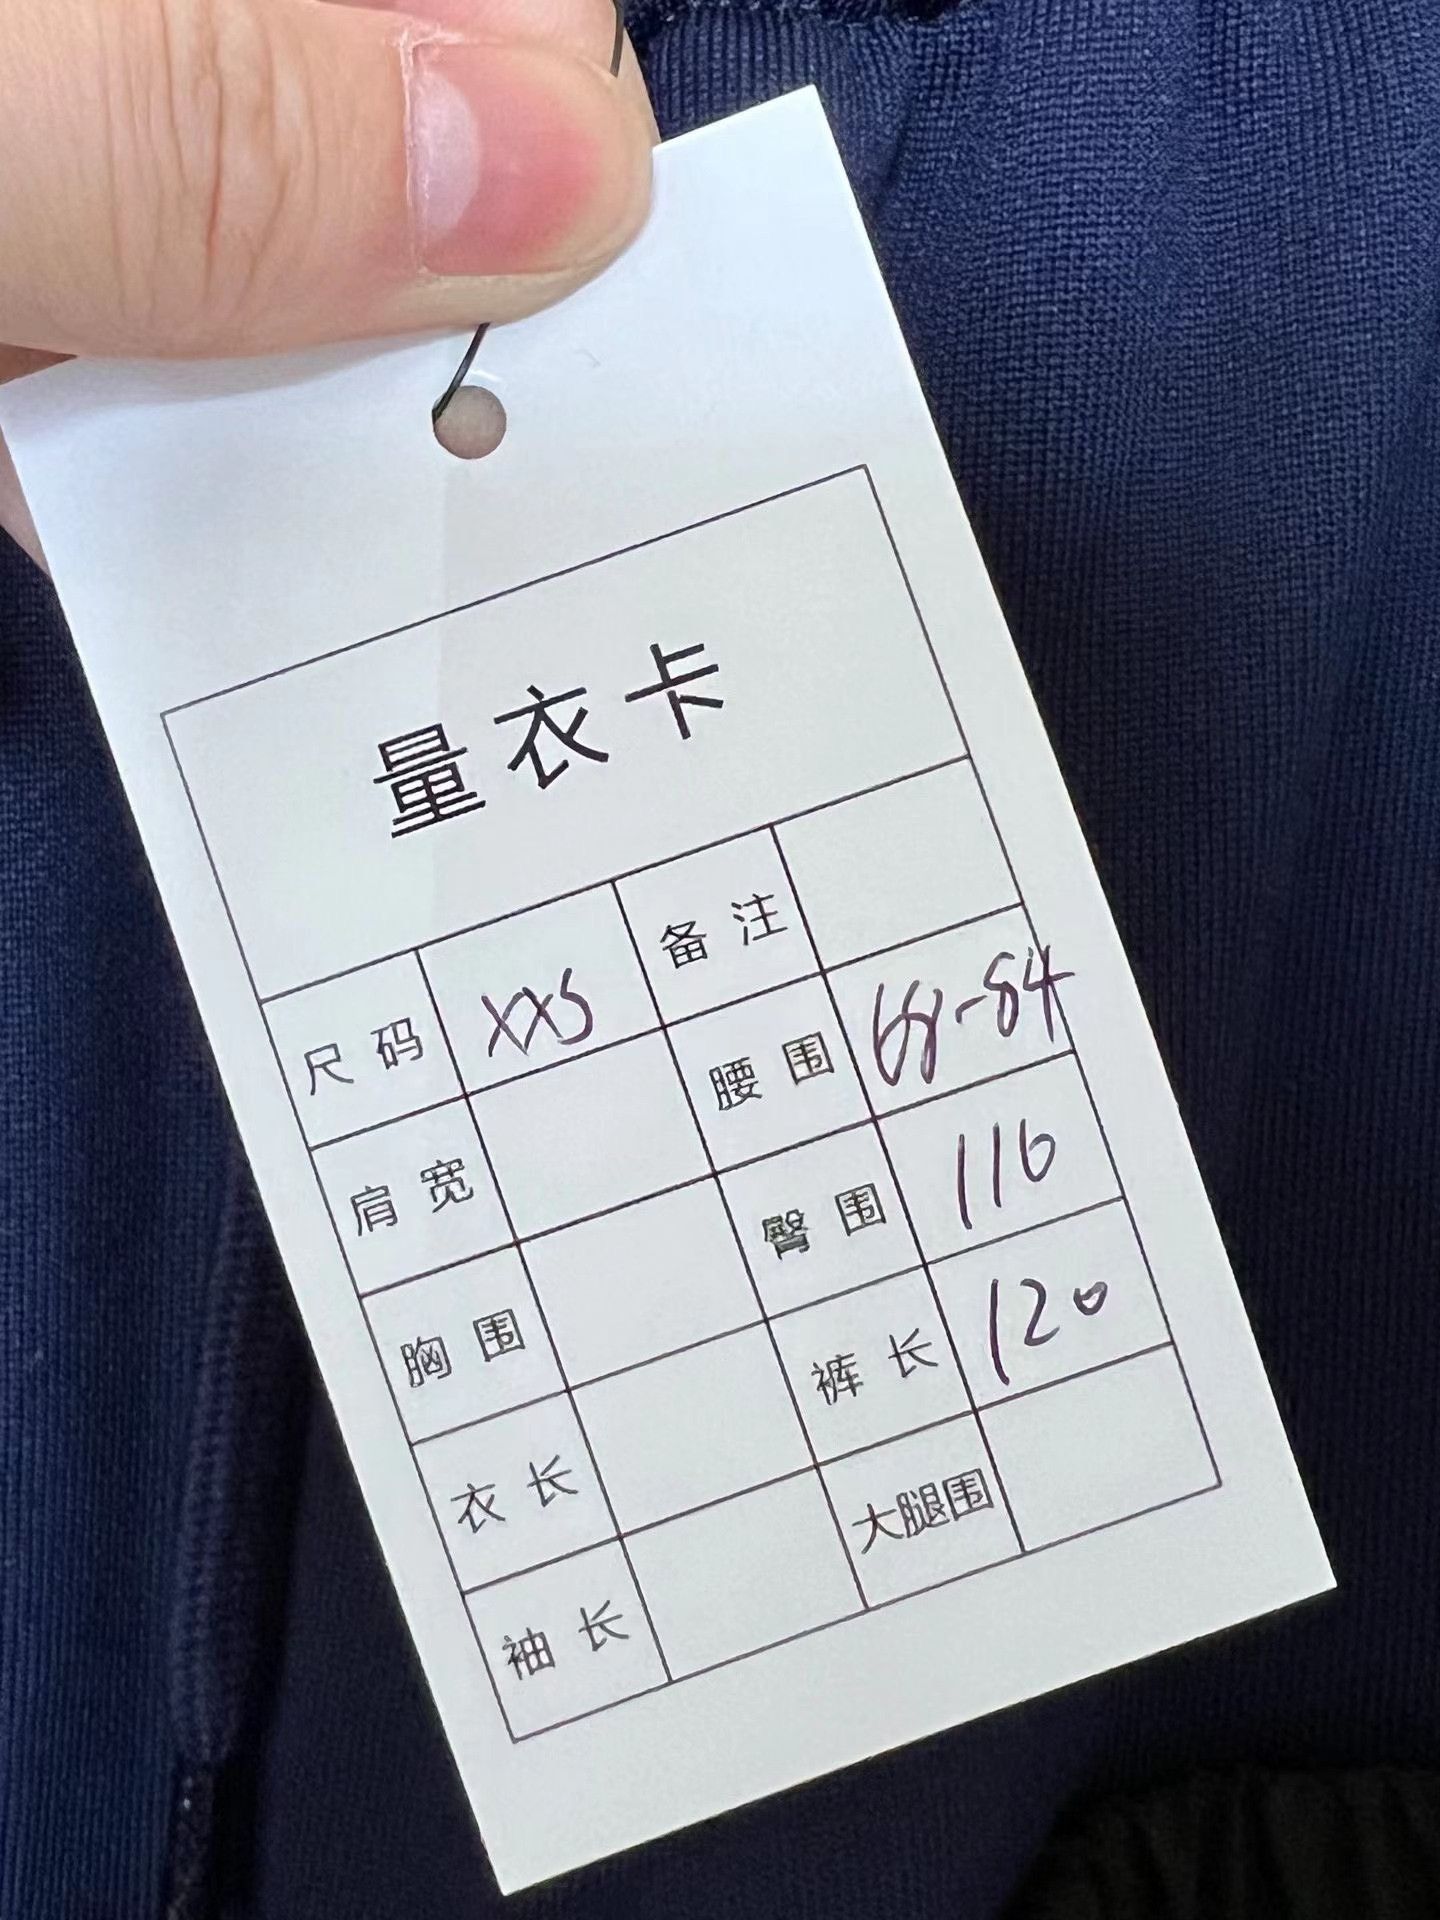 量衣卡
尺码 XXS 备注
肩宽 腰围 68-84
胸围 臀围 116
衣长 裤长 120
袖长 大腿围